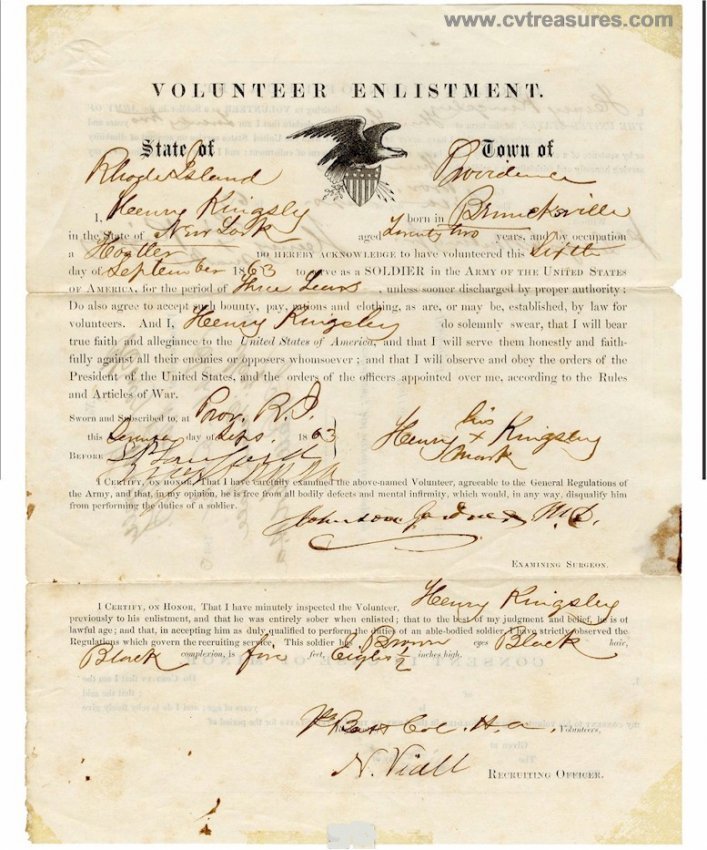 www.cvtreasures.com
VOLUNTEER ENLISTMENT.
State of Town of
Rhode Island Providence
I, Henry Kingsly born in Bruncksville
in the State of New York aged Twenty two years, and by occupation
a Hostler DO HEREBY ACKNOWLEDGE to have volunteered this Sixth
day of September 1863 to serve as a SOLDIER IN THE ARMY OF THE UNITED STATES
OF AMERICA, for the period of Three Years, unless sooner discharged by proper authority;
Do also agree to accept such bounty, pay, rations and clothing, as are, or may be, established, by law for
volunteers. And I, Henry Kingsley do solemnly swear, that I will bear
true faith and allegiance to the United States of America, and that I will serve them honestly and faith-
fully against all their enemies or opposers whomsoever; and that I will observe and obey the orders of the
President of the United States, and the orders of the officers appointed over me, according to the Rules
and Articles of War.
Sworn and Subscribed to, at Prov. R.I.
this day of Sept. 1863
Henry his x mark Kingsley
BEFORE
I CERTIFY, ON HONOR, That I have carefully examined the above-named Volunteer, agreeable to the General Regulations of
the Army, and that, in my opinion, he is free from all bodily defects and mental infirmity, which would, in any way, disqualify him
from performing the duties of a soldier.
Johnson Gardner M.D.
EXAMINING SURGEON.
I CERTIFY, ON HONOR, That I have minutely inspected the Volunteer, Henry Kingsley
previously to his enlistment, and that he was entirely sober when enlisted; that to the best of my judgment and belief, he is of
lawful age; and that, in accepting him as duly qualified to perform the duties of an able-bodied soldier, I have strictly observed the
Regulations which govern the recruiting service. This soldier has Brown eyes Black hair,
Black complexion, is five feet, Eight 1/2 inches high.
Col. H.A. Volunteers,
N. Viall
RECRUITING OFFICER.